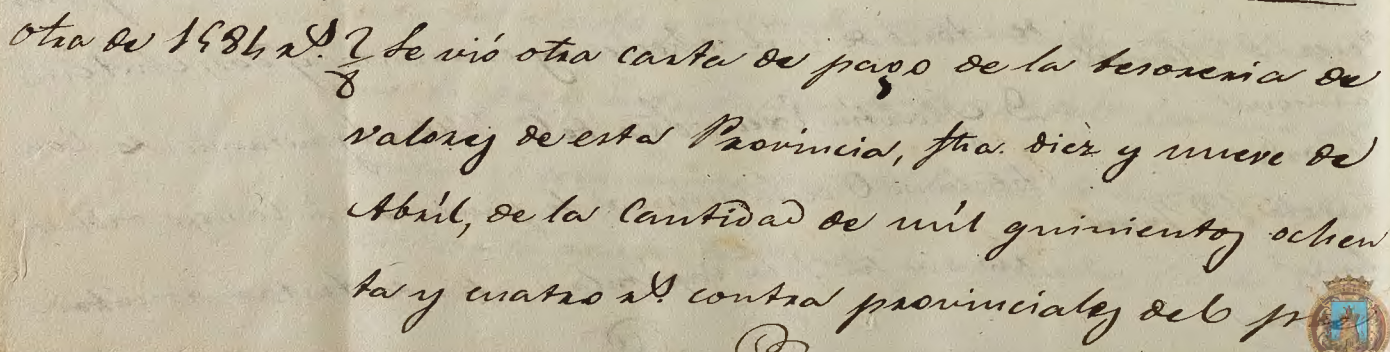 Otra de 1584 r.s Se vió otra carta de pago de la tesoreria de
valores de esta Provincia, fha. diez y nueve de
Abril, de la Cantidad de mil quinientos ochen
ta y cuatro r.s contra provinciales del